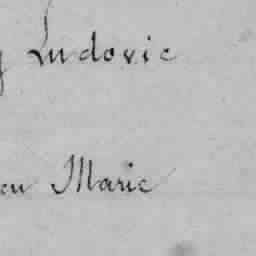 Ludovic
Marie